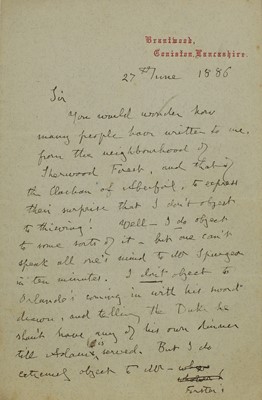 Brantwood,
Coniston, Lancashire.
27th June 1886
Sir
You would wonder how
many people have written to me,
from the neighbourhood of
Sherwood Forest, and that of
the Clachan of Aberfoyl, to express
their surprise that I don't object
to thieving! Well - I do object
to some sorts of it - but one can't
speak all one's mind to Mr Spurgeon
in ten minutes. I don't object to
Orlando's coming in with his sword
drawn, and telling the Duke he
shan't have any of his own dinner
till Adam is served. But I do
extremely object to Mr
Forster's